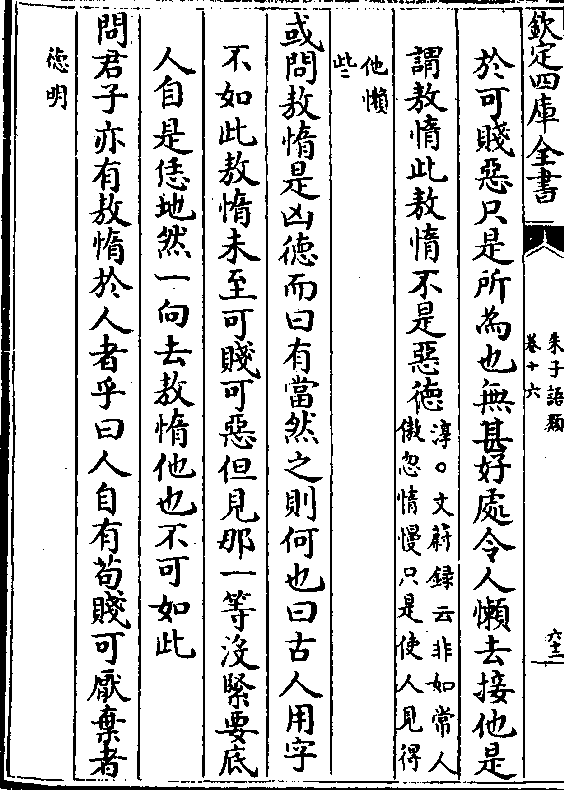 欽定四庫全書
朱子語類
卷十六
六十三
於可賤惡只是所為也無甚好處令人懶去接他是
謂敖惰此敖惰不是惡徳淳○文蔚録云非如常人
傲忽惰慢只是使人見得
他懶
些
或問敖惰是凶徳而曰有當然之則何也曰古人用字
不如此敖惰未至可賤可惡但見那一等沒緊要底
人自是恁地然一向去敖惰他也不可如此
問君子亦有敖惰於人者乎曰人自有苟賤可厭棄者
徳明